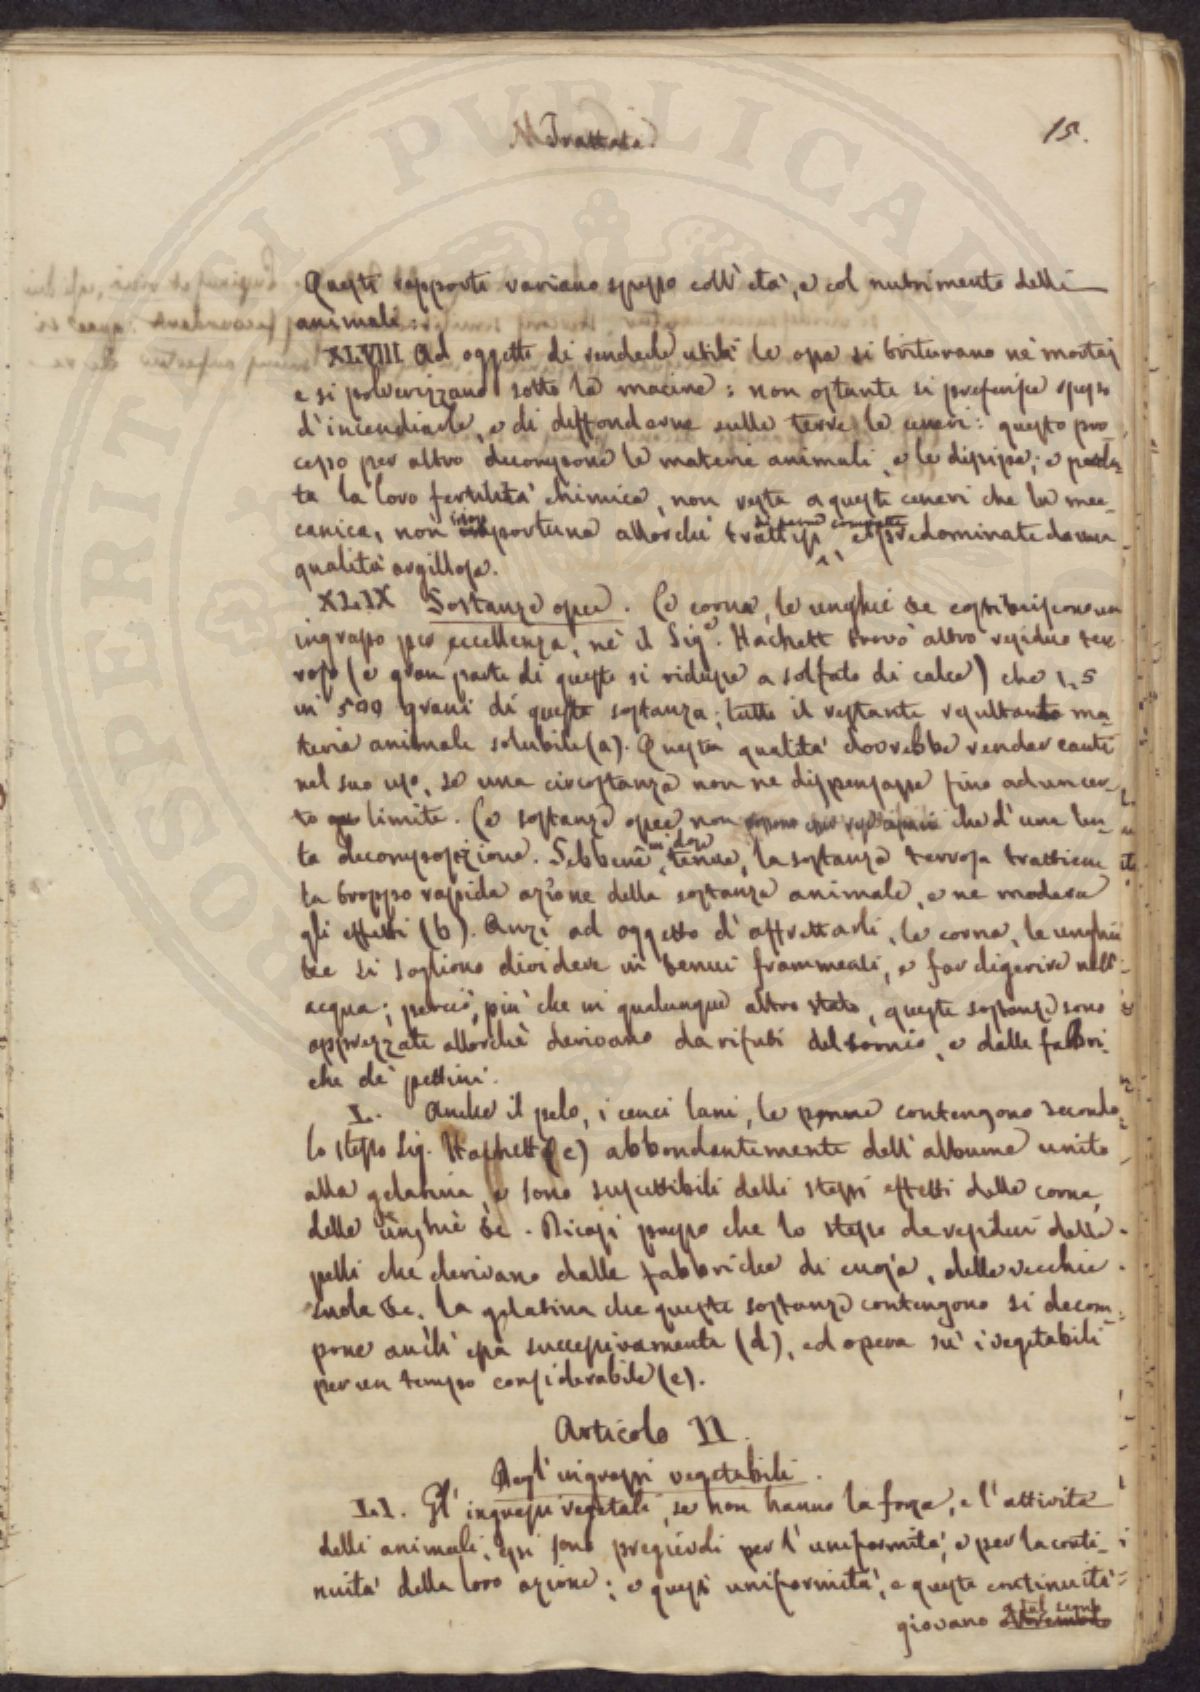 Trattato
15.
Questi rapporti variano spesso coll' età, e col nutrimento delli
animali.
XLVIII Ad oggetto di renderle utili le ossa si triturano ne' mortaj
e si polverizzano sotto la macine: non ostante si preferisce spesso
d'incendiarle, e di diffonderne sulle terre le ceneri: questo pro-
cesso per altro decompone le materie animali, e le dissipa; e perdu-
ta la loro fertilità chimica, non resta a queste ceneri che la mec-
canica, non inopportuna allorchè trattisi di terre compatte e predominate da una
qualità argillosa.
XLIX Sostanze ossee. Le corna, le unghie &c costituiscono un
ingrasso per eccellenza, nè il Sig.r Hachett trovò altro residuo ter-
roso (e gran parte di questo si ridusse a solfato di calce) che 1,5
in 500 grani di queste sostanza; tutto il restante resultando ma-
teria animale solubile (a). Questa qualità dovrebbe render cauti
nel suo uso, se una circostanza non ne dispensasse fino ad un cer-
to limite. Le sostanze ossee non che d'una len-
ta decomposizione. Sebbene in dose tenue, la sostanza terrosa trattiene
la troppo rapida azione della sostanza animale, e ne modera
gli effetti (b). Anzi ad oggetto d'affrettarli, le corna, le unghie
&c si sogliono dividere in tenui frammenti, e far digerire nell'
acqua; perciò, più che in qualunque altro stato, queste sostanze sono
apprezzate allorchè derivano da rifiuti del tornio, e dalle fabbri-
che de' pettini.
L. Anche il pelo, i cenci lani, le penne contengono secondo
lo stesso Sig. Hachett (c) abbondantemente dell' albume unito
alla gelatina, e sono suscettibili delli stessi effetti delle corna,
delle unghie &c. Dicasi presso che lo stesso de residui delle
pelli che derivano dalle fabbriche di cuoja, delle vecchie
suola &c. La gelatina che queste sostanze contengono si decom-
pone anch' essa successivamente (d), ed opera su' i vegetabili
per un tempo considerabile (e).
Articolo II.
Degl' ingrassi vegetabili.
LI. Gl' ingrassi vegetali, se non hanno la forza, e l'attività
delli animali, essi sono pregievoli per l'uniformità, e per la conti-
nuità della loro azione; e questa uniformità, e questa continuità
giovano a tal segno